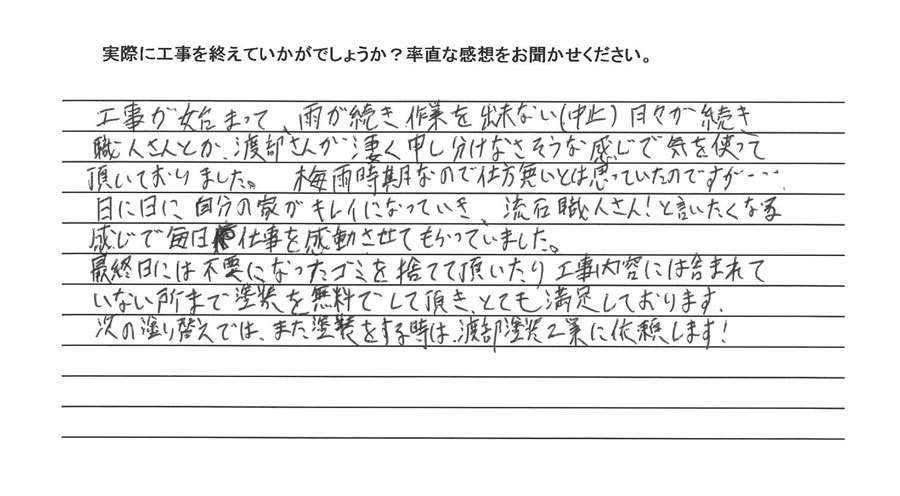 実際に工事を終えていかがでしょうか？率直な感想をお聞かせください。
工事が始まって、雨が続き作業を出来ない(中止)日々が続き
職人さんとか、渡部さんが凄く申し分けなさそうな感じで気を使って
頂いておりました。梅雨時期なので仕方無いとは思っていたのですが・・・、
日に日に、自分の家がキレイになっていき、流石職人さん!と言いたくなる
感じで毎日仕事を感動させてもらっていました。
最終日には不要になったゴミを捨てて頂いたり工事内容には含まれて
いない所まで塗装を無料でして頂き、とても満足しております。
次の塗り替えでは、また塗装をする時は、渡部塗装工業に依頼します!